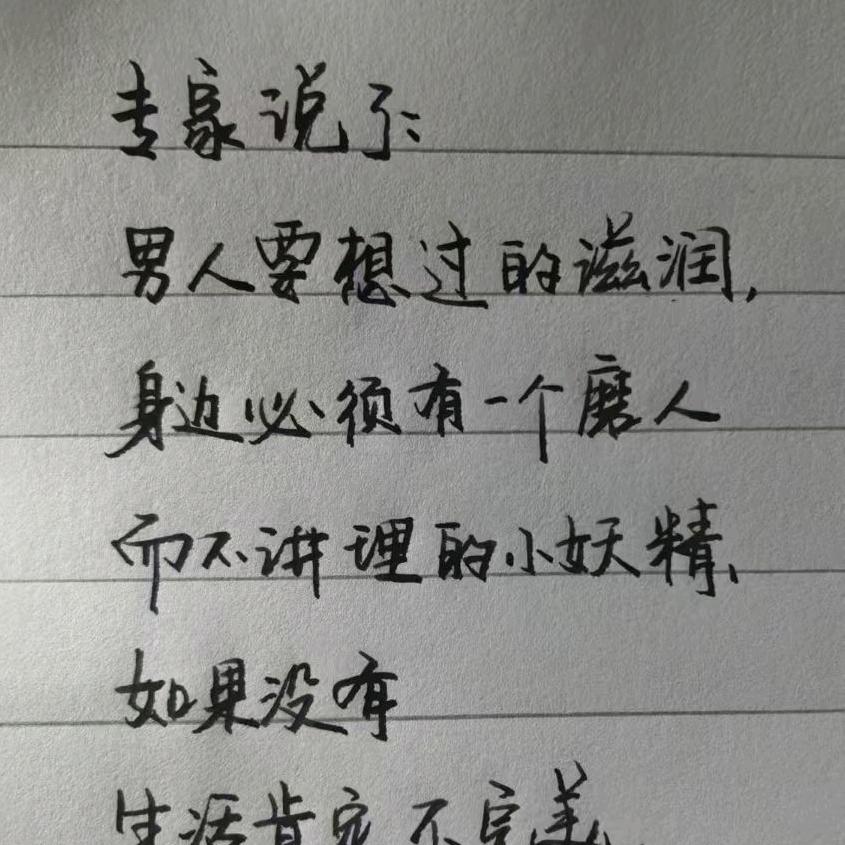 专家说了:
男人要想过的滋润,
身边必须有一个磨人
而不讲理的小妖精、
如果没有
生活肯定不完美